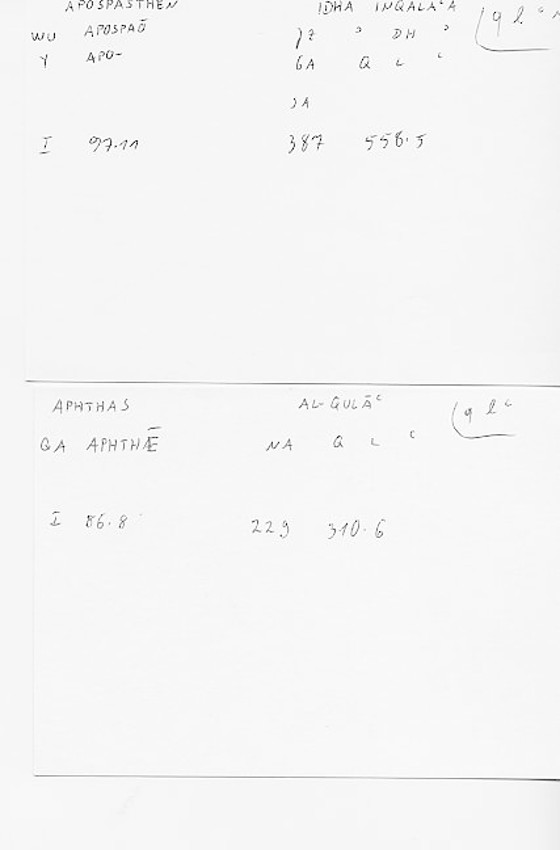 APOSPASTHEN IDHA INQALAʿA q l ʿ
WU APOSPAŌ ʾ DH ʾ
Y APO- GA Q L ʿ
JA
I 97.11 387 558.5
APHTHAS AL-QULĀʿ q l ʿ
GA APHTHĒ NA Q L ʿ
I 86.8 229 310.6